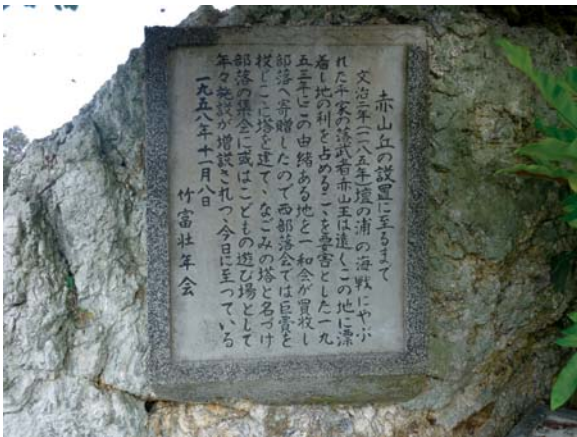 赤山丘の設置に至るまで
文治二年(一一八五年)壇の浦の海戦にやぶ
れた平家の落武者赤山王は遠くこの地に漂
着し地の利を占めるこゝを要害とした一九
五三年にこの由緒ある地を一和会が買收し
部落へ寄贈したので西部落会では巨費を
投じこに塔を建てゝなごみの塔と名づけ
部落の集会に或はこどもの遊び場として
年々施設が増設されつゝ今日に至っている
一九五八年十一月八日
竹富壮年会